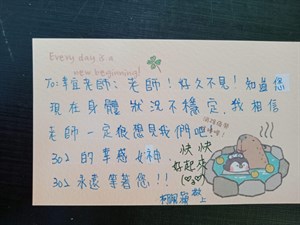 Every day is a
new beginning!
To:幸宜老師：老師！好久不見！知道您
現在身體狀況不穩定，我相信
老師一定很想見我們吧！
301的幸感女神 快快
301永遠等著您！！ 好起來
敬上